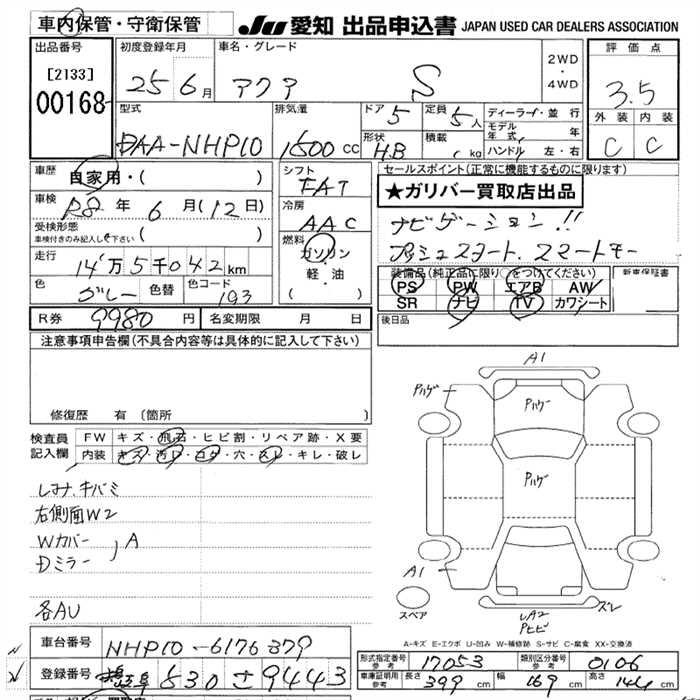 車内保管・守衛保管
JU 愛知 出品申込書 JAPAN USED CAR DEALERS ASSOCIATION
出品番号
[2133]
00168
初度登録年月
25 6月
車名・グレード
アクア S
2WD
・
4WD
評価点
3.5
外装 内装
C C
型式
DAA-NHP10
排気量
1500cc
ドア 5
定員 5人
形状 H.B
積載 kg
ディーラー・並行
モデル年式 年
ハンドル 左・右
車歴
自家用・( )
車検
R8年 6月(12日)
受検形態
車検付きのみ記入して下さい ( )
走行
14万5千042km
色 グレー 色替 色コード 193
シフト
FAT
冷房
AAC
燃料
ガソリン
軽・油
( )
セールスポイント(正常に機能するものに限ります)
★ガリバー買取店出品
ナビゲーション!!
プッシュスタート. スマートキー
装備品(純正品に限り○をつけてください)
新車保証書
PS PW エアB AW
SR ナビ TV カワシート
R券 9980円 名変期限 月 日
後日品
注意事項申告欄(不具合内容等は具体的に記入して下さい)
修復歴 有(箇所
検査員
記入欄
FW キズ・飛石・ヒビ割・リペア跡・X要
内装 キズ・汚レ・コゲ・穴・スレ・キレ・破レ
右側面W2
Wカバー
Dミラー
, A
各AU
A1
Pハゲ
Pハゲ
Pハゲ
A1
スペア
スレ
A-キズ E-エクボ U-凹み W-補修跡 S-サビ C-腐食 XX-交換済
車台番号 NHP10-6176379
登録番号 530 さ 9443
形式指定番号
参考
17053
類別区分番号
参考
0106
車庫証明用
参考
長さ 399cm
幅 169cm
高さ 144cm